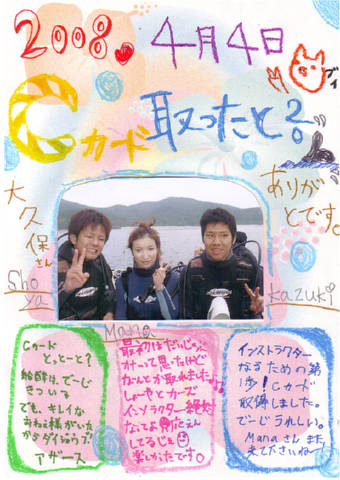 2008. 4月4日
ブイ
Cカード 取ったと?
大久保さん
ありがとです。
Shoya
Mana
Kazuki
Cカード
とっとーと?
でーじ
きついる
でも、キレイな
おねえ様がいた
からダイジョウブ!
アザース。
最初はだいじょぶ
かって思たけど
なんとか取れました。
しょーやとカーズ
インソラクター絶対
なってよ
してるじぇ
楽しかったです。
インストラクター
なるための第
1歩!Cカード
取得しました。
でーじうれしい。
Manaさんまた
来てくださいねー